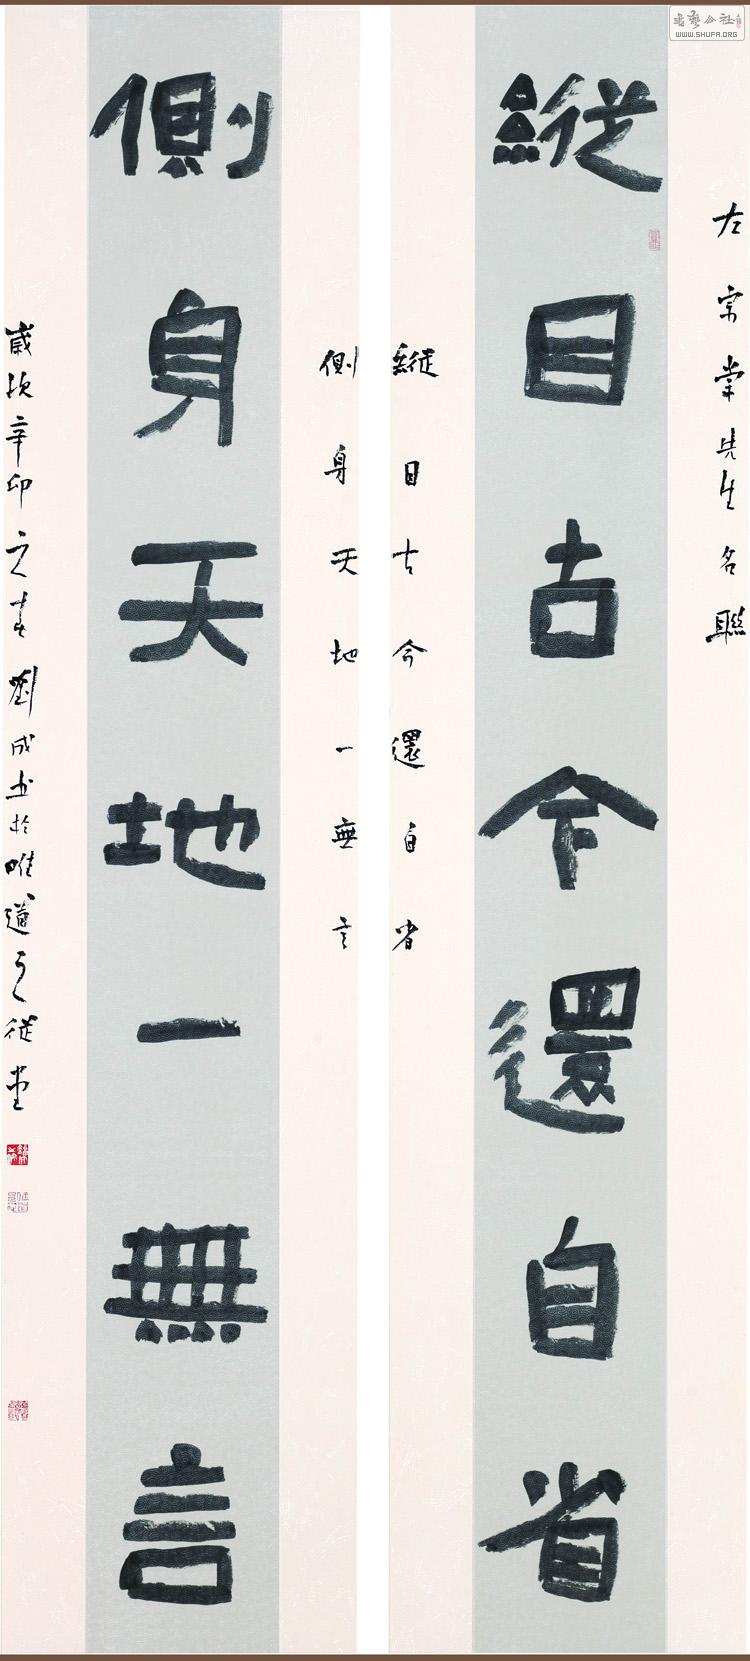 書藝公社
WWW.SHUFA.ORG
左宗棠先生名聯
縱目古今還自省
縱目古今還自省
側身天地一無言
側身天地一無言
歲次辛卯之春劉成書於唯道是從堂